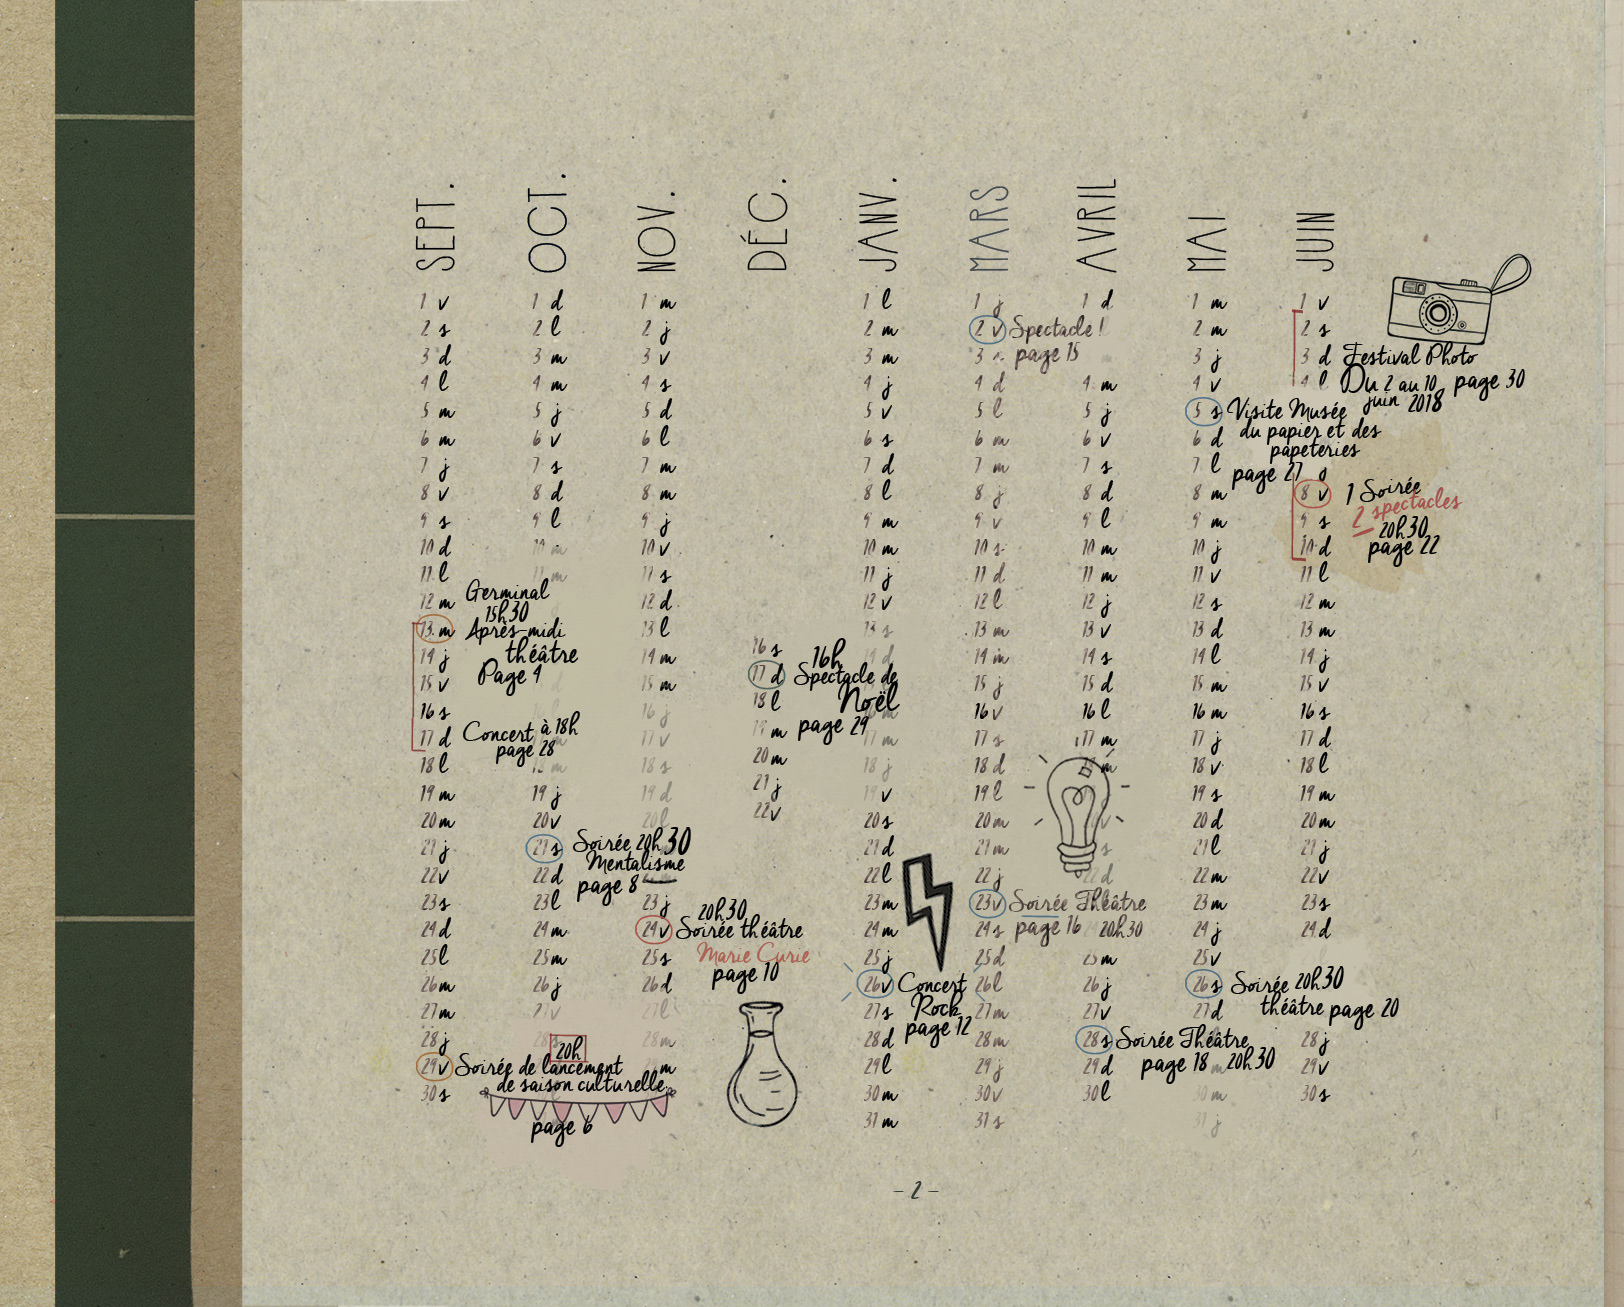 SEPT.
1 v
2 s
3 d
4 l
5 m
6 m
7 j
8 v
9 s
10 d
11 l
12 m
13 m
14 j
15 v
16 s
17 d
18 l
19 m
20 m
21 j
22 v
23 s
24 d
25 l
26 m
27 m
28 j
29 v
30 s
Germinal
15h30
Après-midi
théâtre
Page 4
Concert à 18h
page 28
20h
Soirée de lancement
de saison culturelle
page 6
OCT.
1 d
2 l
3 m
4 m
5 j
6 v
7 s
8 d
9 l
10 m
11 m
19 j
20 v
21 s
22 d
23 l
24 m
25 m
26 j
27 v
28 s
Soirée 20h30
Mentalisme
page 8
NOV.
1 m
2 j
3 v
4 s
5 d
6 l
7 m
8 m
9 j
10 v
11 s
12 d
13 l
14 m
15 m
16 j
17 v
18 s
19 d
20 l
23 j
24 v
25 s
26 d
27 l
28 m
m
20h30
Soirée théâtre
Marie Curie
page 10
DÉC.
16 s
17 d
18 l
19 m
20 m
21 j
22 v
16h
Spectacle de
Noël
page 29
JANV.
1 l
2 m
3 m
4 j
5 v
6 s
7 d
8 l
9 m
10 m
11 j
12 v
13 s
14 d
17 m
18 j
19 v
20 s
21 d
22 l
23 m
24 m
25 j
26 v
27 s
28 d
29 l
30 m
31 m
Concert
Rock
page 12
MARS
1 j
2 v
3
4 d
5 l
6 m
7 m
8 j
9 v
10 s
11 d
12 l
13 m
14 m
15 j
16 v
17 s
18 d
19 l
20 m
21 m
22 j
23 v
24 s
25 d
26 l
27 m
28 m
29 j
30 v
31 s
Spectacle !
page 15
Soirée Théâtre
page 16 20h30
AVRIL
1 d
4 m
5 j
6 v
7 s
8 d
9 l
10 m
11 m
12 j
13 v
14 s
15 d
16 l
17 m
18 m
v
s
22 d
25 m
26 j
27 v
28 s
29 d
30 l
Soirée Théâtre
page 18 20h30
MAI
1 m
2 m
3 j
4 v
5 s
6 d
7 l
8 m
9 m
10 j
11 v
12 s
13 d
14 l
15 m
16 m
17 j
18 v
19 s
20 d
21 l
22 m
23 m
24 j
25 v
26 s
27 d
30 m
31 j
Visite Musée
du papier et des
papeteries
page 27
Soirée 20h30
théâtre page 20
JUIN
1 v
2 s
3 d
4 l
j
8 v
9 s
10 d
11 l
12 m
13 m
14 j
15 v
16 s
17 d
18 l
19 m
20 m
21 j
22 v
23 s
24 d
28 j
29 v
30 s
Festival Photo
Du 2 au 10 page 30
juin 2018
1 Soirée
2 spectacles
20h30
page 22
- 2 -